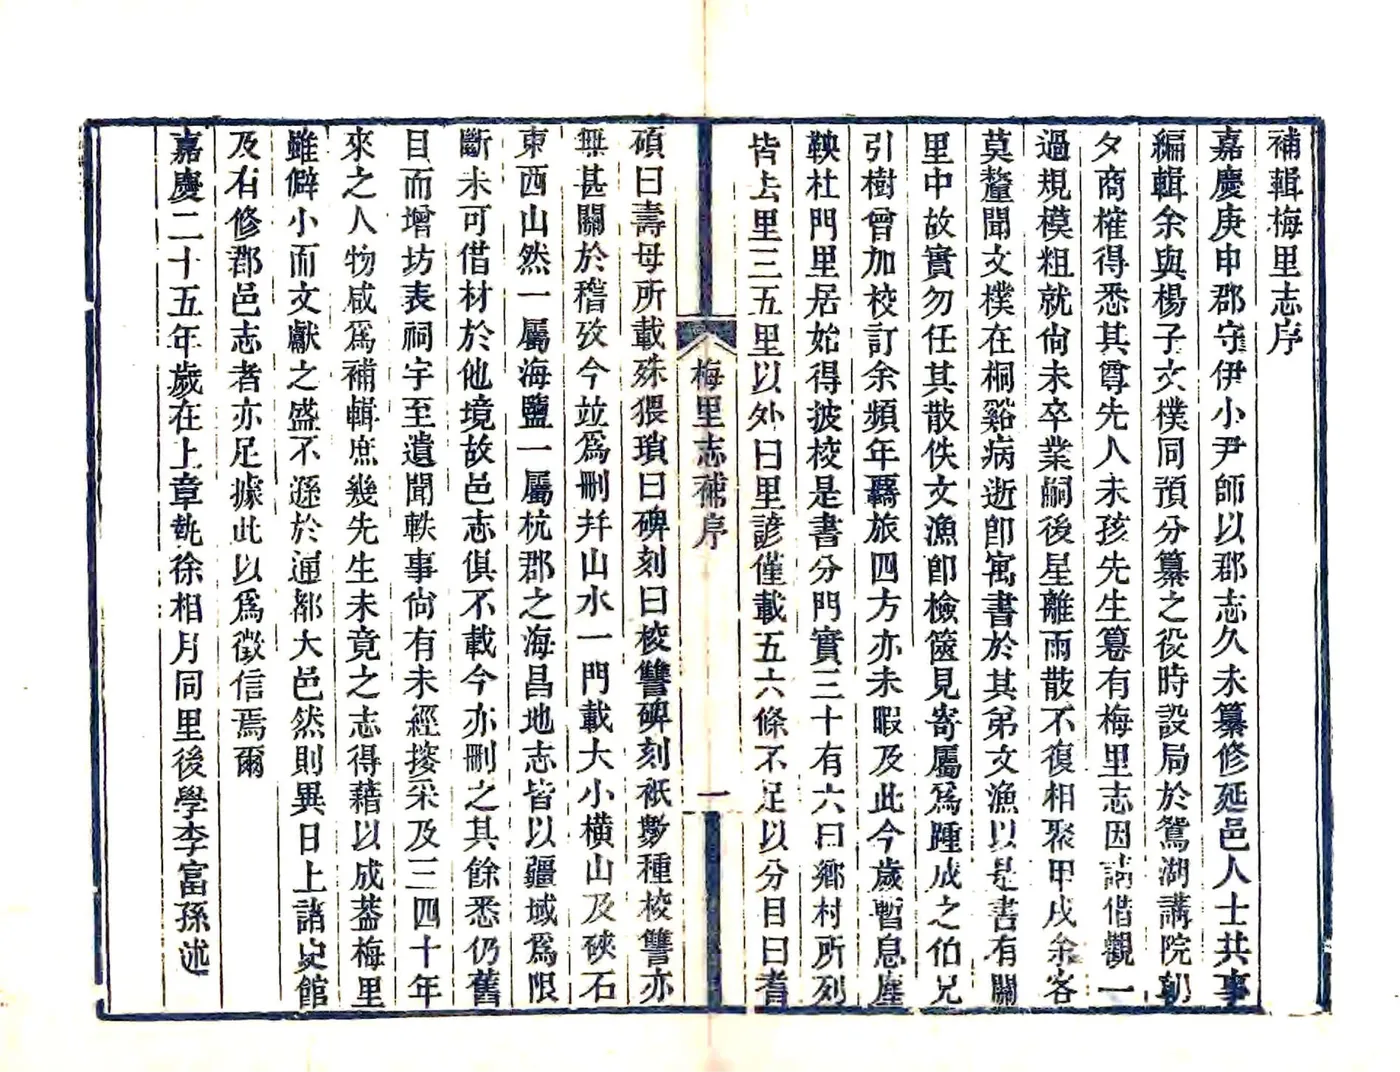 補輯梅里志序
嘉慶庚申郡守伊小尹師以郡志久未纂修延邑人士共事
編輯余與楊子文樸同預分纂之役時設局於鴛湖講院朝
夕商榷得悉其尊先人未孩先生纂有梅里志因請偕觀一
過規模粗就尙未卒業嗣後星離雨散不復相聚甲戌余客
莫釐聞文樸在桐谿病逝卽寓書於其弟文漁以是書有關
里中故實勿任其散佚文漁卽檢篋見寄屬爲踵成之伯兄
引樹曾加校訂余頻年羈旅四方亦未暇及此今歲暫息塵
鞅杜門里居始得披校是書分門實三十有六曰鄉村所列
皆去里三五里以外曰里諺僅載五六條不足以分目曰耆
梅里志補序
一
碩曰壽母所載殊猥瑣曰碑刻曰校讐碑刻祇數種校讐亦
無甚關於稽攷今竝爲刪幷山水一門載大小橫山及硤石
東西山然一屬海鹽一屬杭郡之海昌地志皆以疆域爲限
斷未可借材於他境故邑志俱不載今亦刪之其餘悉仍舊
目而增坊表祠宇至遺聞軼事尙有未經搜采及三四十年
來之人物咸爲補輯庶幾先生未竟之志得藉以成葢梅里
雖僻小而文獻之盛不遜於通都大邑然則異日上諸史館
及石修郡邑志者亦足據此以爲徵信焉爾
嘉慶二十五年歲在上章執徐相月同里後學李富孫述